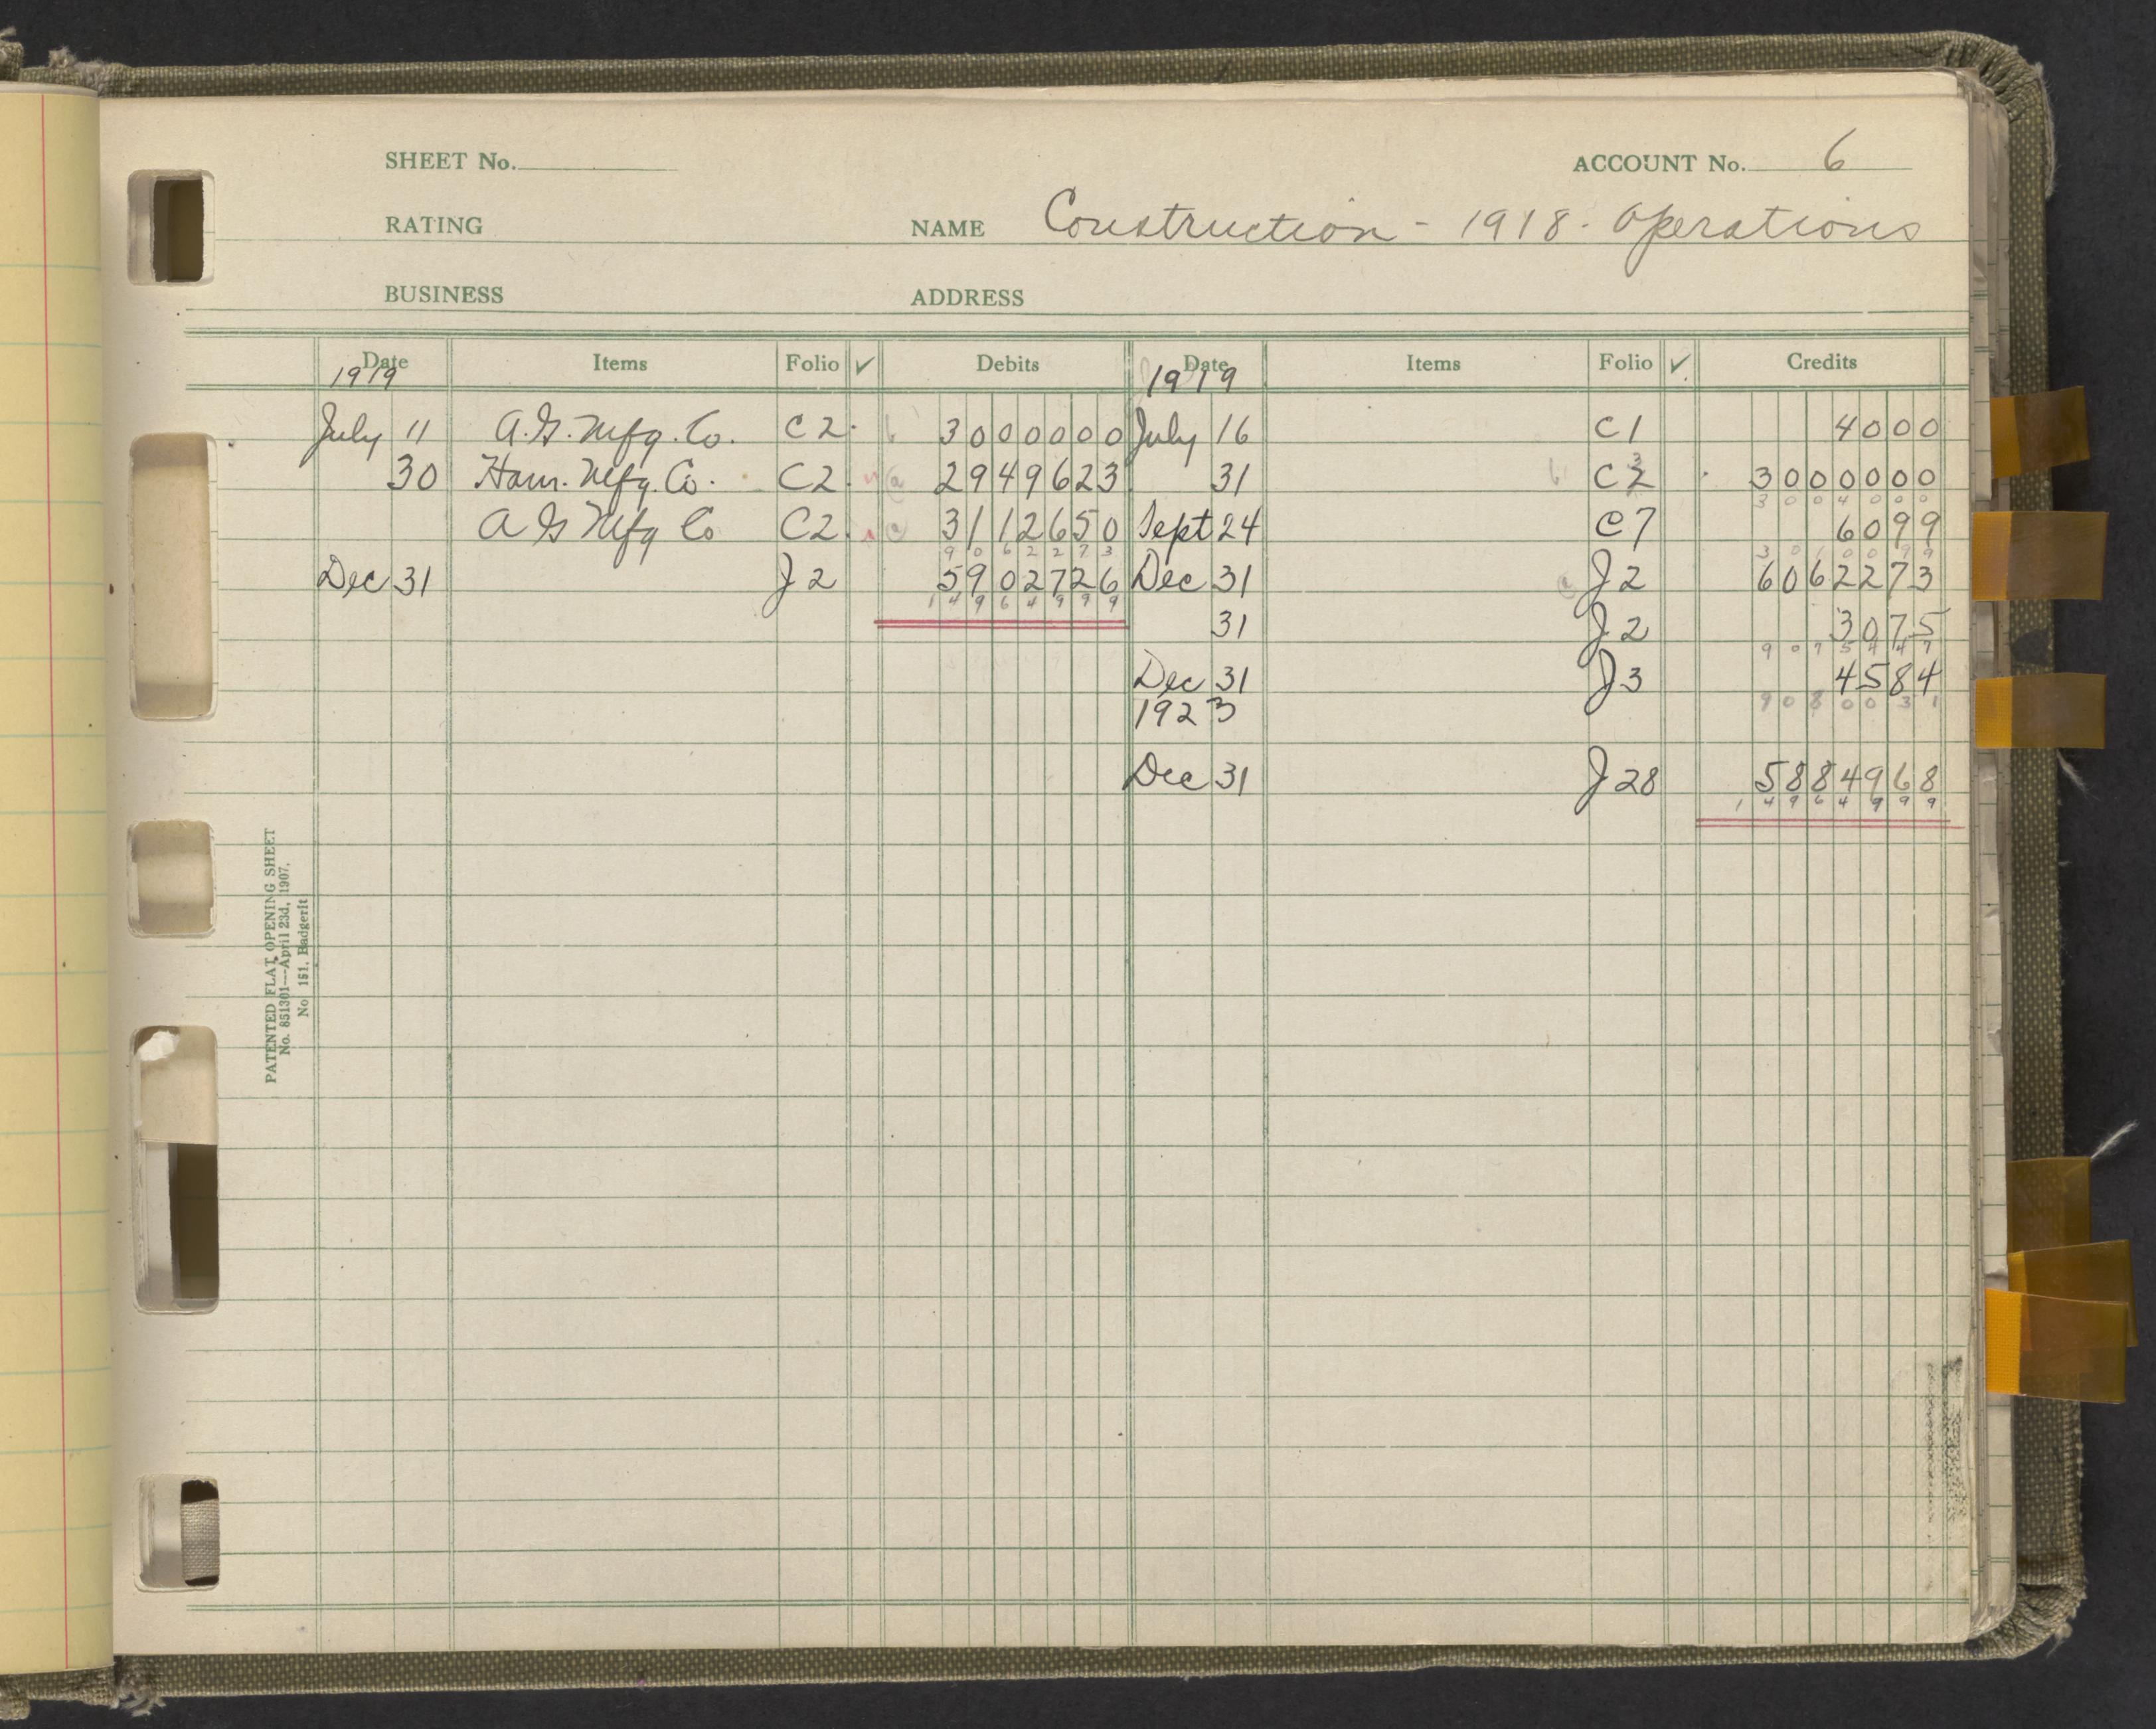 SHEET No. ACCOUNT No. 6
RATING NAME Construction - 1918 - Operations
BUSINESS ADDRESS
Date Items Folio ✓ Debits Date Items Folio ✓ Credits
1919 1919
July 11 A.G. Mfg. Co. C2 3000000 July 16 C1 4000
30 Ham. Mfg. Co. C2 2949623 31 C2 3 3000000
3004000
A G Mfg Co C2 3112650 Sept 24 C7 6099
9062273 3010099
Dec 31 J2 5902726 Dec 31 J2 6062273
14964999
31 J2 3075
9075447
Dec 31 J3 4584
1923 9080031
Dec 31 J28 5884968
14964999
PATENTED FLAT OPENING SHEET
No. 851301—April 23d, 1907.
No 151. Badgerit